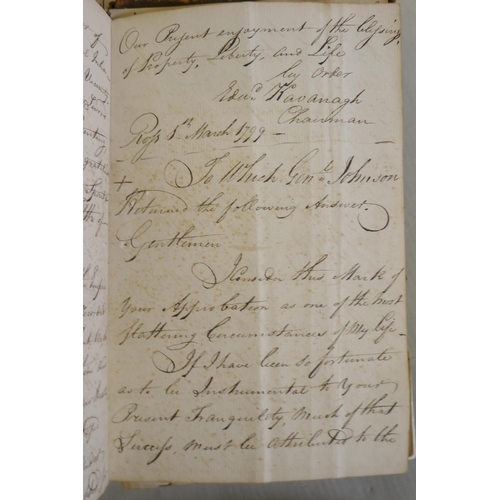 Our Present enjoyment of the blessings
of Property, Liberty, and Life
by order
Edwd. Kavanagh
Chairman
Ross 5th. March 1799 —
+ To Which Genl. Johnson
Returned the following Answer.
Gentlemen
I Consider this Mark of
Your Approbation as one of the most
flattering Circumstances of My Life —
If I have been so fortunate
as to be Instrumental to Your
Present Tranquility, Much of that
Success, must be attributed to the